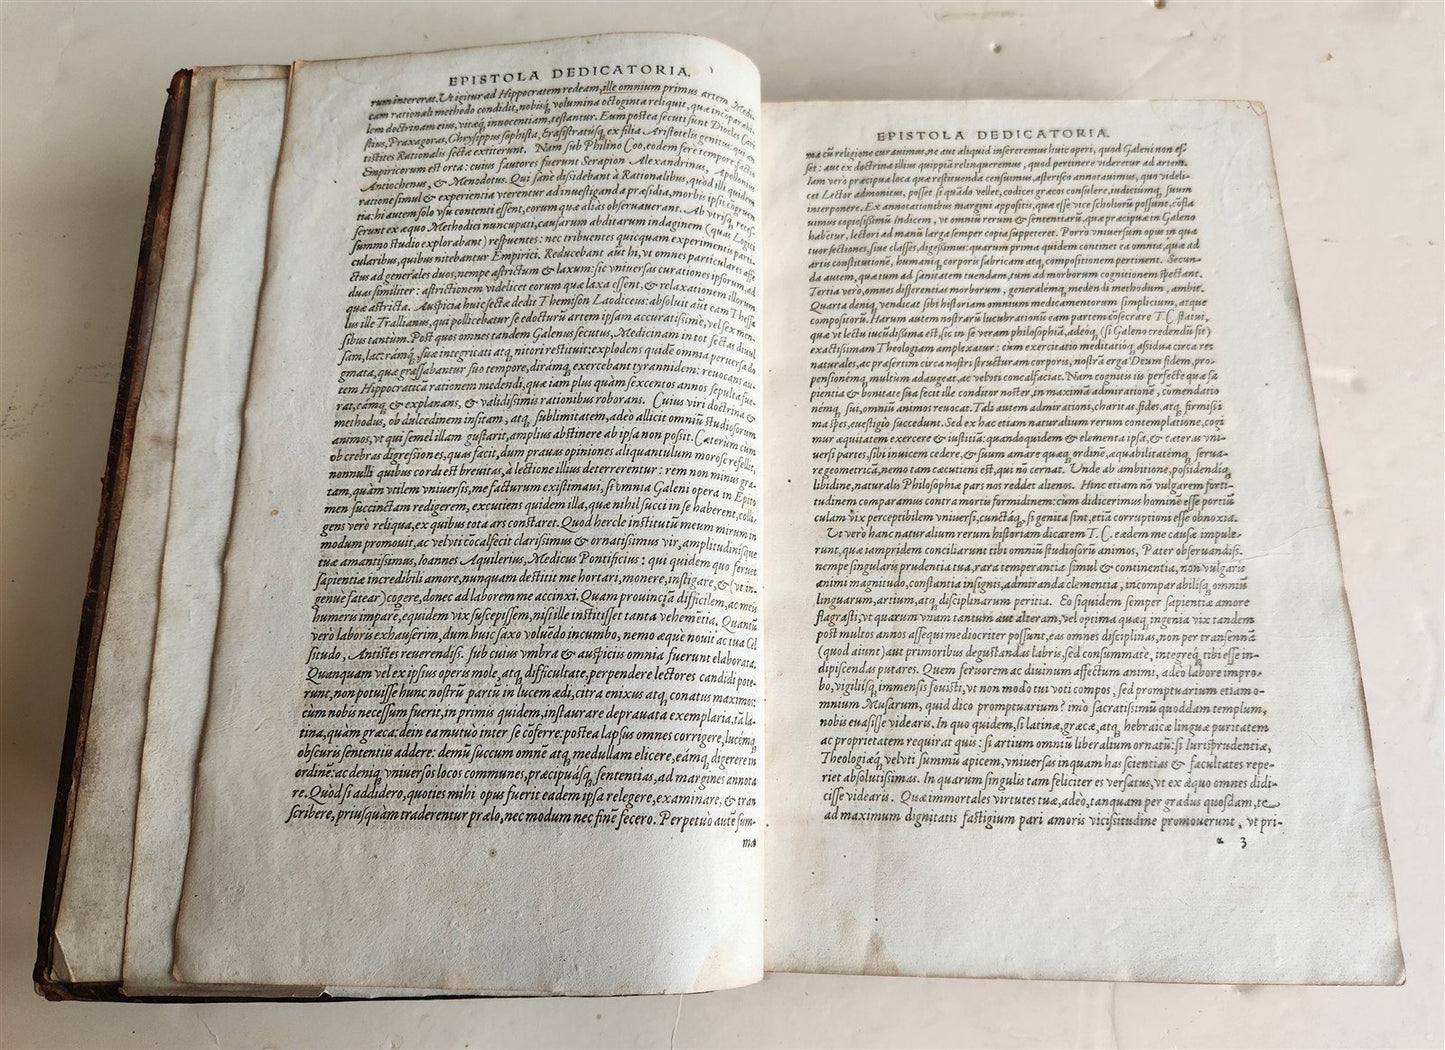 EPISTOLA DEDICATORIA.
rum intererat. Ut igitur ad Hippocratem redeam, ille omnium primus artem Medi-
cam rationali methodo condidit, nobisq́ volumina octoginta reliquit, quæ incōparabi-
lem doctrinam eius, vitæq́ innocentiam, testantur. Eum postea secuti sunt Diocles Cari
stius, Praxagoras, Chrysippus sophista, Erasistratusq́ ex filia Aristotelis genitus: qui an
tistites Rationalis sectæ extiterunt. Nam sub Philino Coo, eodem ferè tempore, factio
Empiricorum est orta: cuius fautores fuerunt Serapion Alexandrinus, Apollonius
Antiochenus, & Menodotus. Qui sanè dissidebant à Rationalibus, quòd illi quidem
ratione simul & experientia vterentur ad inuestiganda præsidia, morbis ipsis congruen
tia: hi autem solo vsu contenti essent, eorum quæ aliàs obseruauerant. Ab vtrisq́ reces-
serunt ex æquo Methodici nuncupati, causarum abditarum indaginem (quas Logici
summo studio explorabant) respuentes: nec tribuentes quicquam experimentis parti-
cularibus, quibus nitebantur Empirici. Reducebant aūt hi, vt omnes particulares affe
ctus ad generales duos, nempe astrictum & laxum: sic vniuersas curationes ipsorum, ad
duas similiter: astrictionem videlicet eorum quæ laxa essent, & relaxationem illorum
quæ astricta. Auspicia huic sectæ dedit Themison Laodiceus: absoluit aūt eam Thessa
lus ille Trallianus, qui pollicebatur se edocturū artem ipsam accuratissimè, vel sex men
sibus tantum. Post quos omnes tandem Galenus secutus, Medicinam in tot sectas diuul
sam, lacerámq́, suæ integritati atq́ nitori restituit: explodens quidē omnia peruersa do
gmata, quæ grassabantur suo tempore, dirámq́ exercebant tyrannidem: reuocans au-
tem Hippocraticā rationem medendi, quæ iam plus quàm sexcentos annos sepulta fue-
rat, eámq́ & explanans, & validissimis rationibus roborans. Cuius viri doctrina &
methodus, ob dulcedinem insitam, atq́ sublimitatem, adeò allicit omniū studiosorum
animos, vt qui semel illam gustarit, amplius abstinere ab ipsa non possit. Cæterum cum
ob crebras digressiones, quas facit, dum prauas opiniones aliquantulum morosè refellit,
nonnulli quibus cordi est breuitas, à lectione illius deterrerentur: rem non minus gra-
tam, quàm vtilem vniuersis, me facturum existimaui, si omnia Galeni opera in Epito
men succinctam redigerem, excutiens quidem illa, quæ nihil succi in se haberent, colli-
gens verò reliqua, ex quibus tota ars constaret. Quod hercle institutū meum mirum in
modum promouit, ac velvti cōcalfecit clarissimus & ornatissimus vir, amplitudinisque
tuæ amantissimus, Ioannes Aquilerius, Medicus Pontificius: qui quidem quo feruet
sapientiæ incredibili amore, nunquam destitit me hortari, monere, instigare, & (vt in-
genuè fatear) cogere, donec ad laborem me accinxi. Quam prouinciā difficilem, ac meis
humeris impare, equidem vix suscepissem, nisi ille institisset tanta vehemētia. Quantū
verò laboris exhauserim, dum huic saxo voluēdo incumbo, nemo æquè nouit ac tua Cel
situdo, Antistes reuerendiss. sub cuius vmbra & auspiciis omnia fuerunt elaborata.
Quanquam vel ex ipsius operis mole, atq́ difficultate, perpendere lectores candidi pote-
runt, non potuisse hunc nostrū partū in lucem ædi, citra enixus atq́ conatus maximos:
cùm nobis necessum fuerit, in primis quidem, instaurare deprauata exemplaria, tā la-
tina, quàm græca: dein ea mutuò inter se cōferre: postea lapsus omnes corrigere, lucémq́
obscuris sententiis addere: demū succum omnē atq́ medullam elicere, eámq́ digerere in
ordinē: ac deniq́ vniuersos locos communes, præcipuásq́ sententias, ad margines annota
re. Quòd si addidero, quoties mihi opus fuerit eadem ipsa relegere, examinare, & tran
scribere, priusquàm traderentur prælo, nec modum nec finē fecero. Perpetuò autē sum-
ma
EPISTOLA DEDICATORIA.
ma cū religione curauimus, ne aut aliquid insereremus huic operi, quod Galeni non es-
set: aut ex doctrina illius quippiā relinqueremus, quod pertinere videretur ad artem.
Iam verò præcipua loca quæ restituenda censuimus, asterisco annotauimus, quo videli-
cet Lector admonitus, posset si quādo vellet, codices græcos consulere, iudiciumq́ suum
interponere. Ex annotationibus margini appositis, quæ esse vice scholiorū possunt, cōfla
uimus copiosissimū Indicem, vt omnium rerum & sententiarū, quæ præcipuæ in Galeno
habētur, lectori ad manū larga semper copia suppeteret. Porrò vniuersum opus in qua
tuor sectiones, siue classes, digessimus: quarum prima quidem continet ea omnia, quæ ad
artis constitutionē, humaniq́ corporis fabricam atq́ compositionem pertinent. Secun-
da autem, quætum ad sanitatem tuendam, tum ad morborum cognitionem spectant.
Tertia verò, omnes differentias morborum, generalémq́ medendi methodum, ambit.
Quarta deniq́ vendicat sibi historiam omnium medicamentorum simplicium, atque
compositorū. Harum autem nostrarū lucubrationū eam partem cōsecrare T. C. statui,
quæ vt lectu iucūdissima est, sic in se veram philosophiā, adeóq́ (si Galeno credendū sit)
exactissimam Theologiam amplexatur: cùm exercitatio meditatióq́ assidua circa res
naturales, ac præsertim circa nostri structuram corporis, nostrā erga Deum fidem, pro-
pensionémq́ multùm adaugeat, ac velvti concalfaciat. Nam cognitis iis perfectè quæ sa
pientia & bonitate sua fecit ille conditor noster, in maximā admirationē, cōmendatio
némq́ sui, omniū animos reuocat. Tali autem admirationi, charitas, fides, atq́ firmissi
ma spes, euestigio succedunt. Sed ex hac etiam naturalium rerum contemplatione, cogi
mur æquitatem exercere & iustitiā: quandoquidem & elementa ipsa, & cæteræ vni-
uersi partes, sibi inuicem cedere, & suum amare quæq́ ordinē, æquabilitatémq́ serua-
re geometricā, nemo tam cæcutiens est, qui nō cernat. Unde ab ambitione, possidendiq́
libidine, naturalis Philosophiæ pars nos reddet alienos. Hinc etiam nō vulgarem forti-
tudinem comparamus contra mortis formidinem: cùm didicerimus hominē esse portiū
culam vix perceptibilem vniuersi, cunctáq́ si genita sint, etiā corruptioni esse obnoxia.
Ut verò hanc naturalium rerum historiam dicarem T. C. eædem me causæ impule-
runt, quæ iampridem conciliarunt tibi omniū studiosorū animos, Pater obseruandiss.
nempe singularis prudentia tua, rara temperantia simul & continentia, non vulgaris
animi magnitudo, constantia insignis, admiranda clementia, incomparabilisq́ omniū
linguarum, artium, atq́ disciplinarum peritia. Eo siquidem semper sapientiæ amore
flagrasti, vt quarum vnam tantum aut alteram, vel optima quæq́ ingenia vix tandem
post multos annos assequi mediocriter possunt, eas omnes disciplinas, non per transennā
(quod aiunt) aut primoribus degustandas labris, sed consummatè, integréq́ tibi esse in-
dipiscendas putares. Quem feruorem ac diuinum affectum animi, adeò labore impro-
bo, vigiliísq́ immensis fouisti, vt non modo tui voti compos, sed promptuarium etiam o-
mnium Musarum, quid dico promptuarium? imò sacratissimū quoddam templum,
nobis euasisse videaris. In quo quidem, si latinæ, græcæ, atq́ hebraicæ linguæ puritatem
ac proprietatem requirat quis: si artium omniū liberalium ornatū: si Iurisprudentiæ,
Theologiæq́ velvti summū apicem, vniuersas inquam has scientias & facultates repe-
riet absolutissimas. In quarum singulis tam feliciter es versatus, vt ex æquo omnes didi-
cisse videaris. Quæ immortales virtutes tuæ, adeò, tanquam per gradus quosdam, te
ad maximum dignitatis fastigium pari amoris vicissitudine promouerunt, vt pri-
a 3